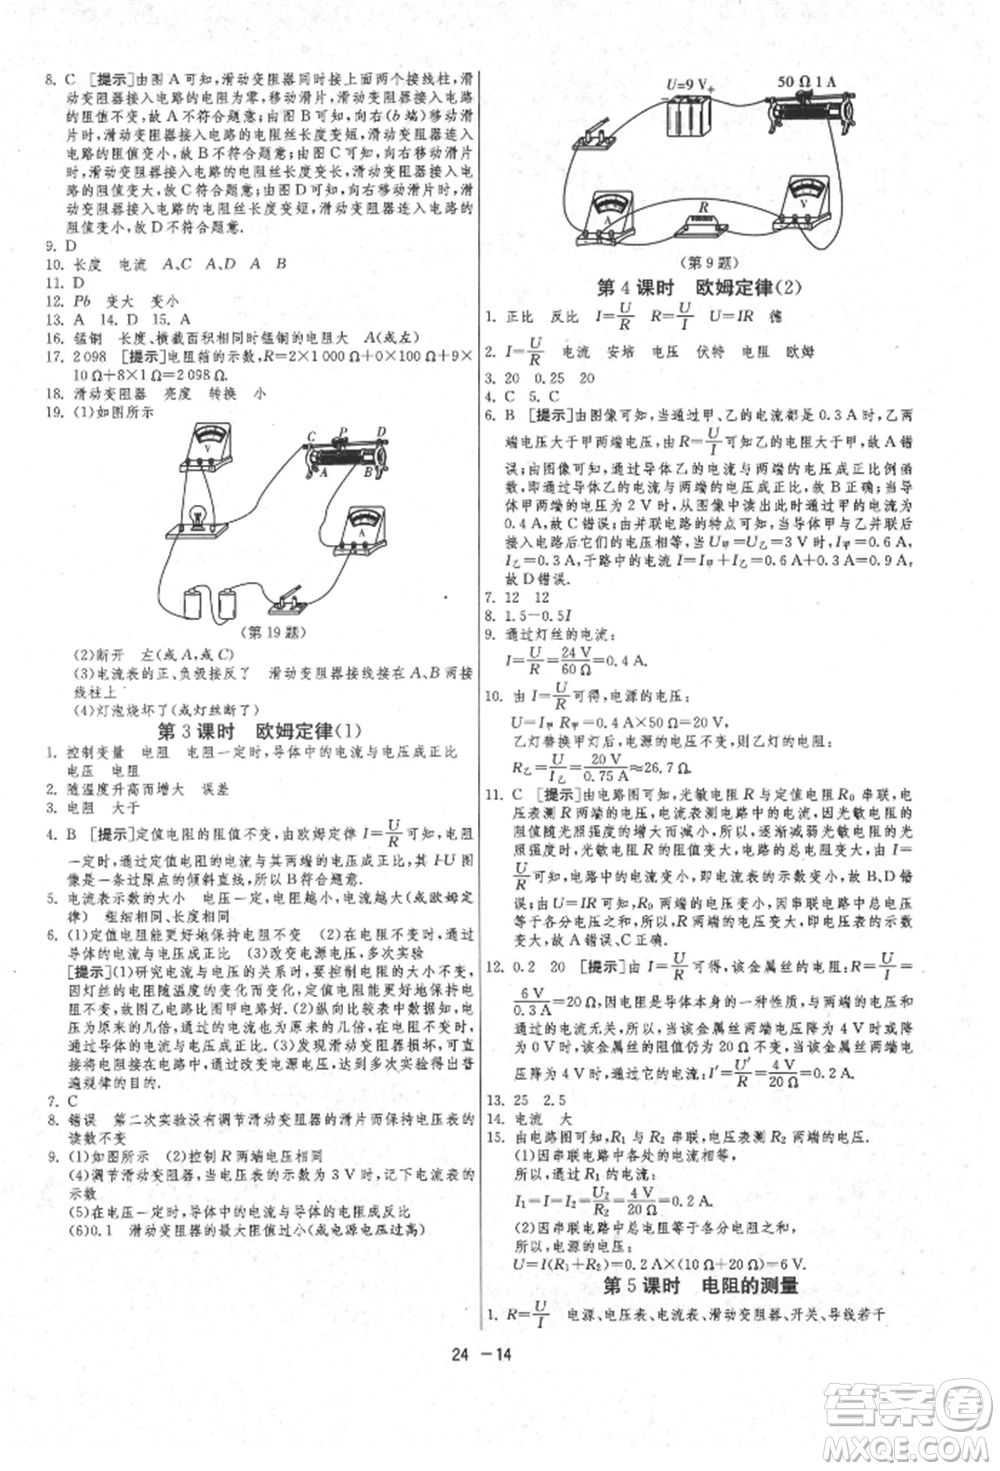 8. C [提示]由图 A 可知,滑动变阻器同时接上面两个接线柱,滑
动变阻器接入电路的电阻为零,移动滑片,滑动变阻器接入电路
的阻值不变,故 A 不符合题意;由图 B 可知,向右(b 端)移动滑
片时,滑动变阻器接入电路的电阻丝长度变短,滑动变阻器连入
电路的阻值变小,故 B 不符合题意;由图 C 可知,向右移动滑片
时,滑动变阻器接入电路的电阻丝长度变长,滑动变阻器连入电
路的阻值变大,故 C 符合题意;由图 D 可知,向右移动滑片时,滑
动变阻器接入电路的电阻丝长度变短,滑动变阻器连入电路的
阻值变小,故 D 不符合题意.
9. D
10. 长度 电流 A、C A、D
11. D
12. Pb 变大 变小
13. A 14. D 15. A
16. 锰铜 长度、横截面积相同时锰铜的电阻大 A(或左)
17. 2 098 [提示]电阻箱的示数,R=2×1 000 Ω+0×100 Ω+9×
10 Ω+8×1 Ω=2 098 Ω.
18. 滑动变阻器 亮度 转换 小
19. (1)如图所示
V
C P D
A B
A
(第 19 题)
(2)断开 左(或 A,或 C)
(3)电流表的正、负极接反了 滑动变阻器接线接在 A、B 两接
线柱上
(4)灯泡烧坏了(或灯丝断了)
第 3 课时 欧姆定律(1)
1. 控制变量 电阻 电阻一定时,导体中的电流与电压成正比
电压 电阻
2. 随温度升高而增大 误差
3. 电阻 大于
4. B [提示]定值电阻的阻值不变,由欧姆定律 I=U/R 可知,电阻
一定时,通过定值电阻的电流与其两端的电压成正比,其 I-U 图
像是一条过原点的倾斜直线,所以 B 符合题意.
5. 电流表示数的大小 电压一定,电阻越小,电流越大(或欧姆定
律) 粗细相同、长度不同
6. (1)定值电阻能更好地保持电阻不变 (2)在电阻一定时,通过
导体的电流与电压成正比 (3)改变电源电压,多次实验
[提示](1)研究电流与电压的关系时,要控制电阻的大小不变,
因灯丝的电阻随温度的变化而变化,定值电阻能更好地保持电
阻不变,故图乙电路比图甲电路好.(2)纵向比较表中数据可知,
电压为原来的几倍,通过的电流也为原来的几倍,即在电阻一定
时,通过导体的电流与电压成正比.(3)发现滑动变阻器损坏,可
直接将电阻接在电路中,通过改变电源电压,多次实验得出更普
遍规律的目的.
7. C
8. 错误 第二次实验没有调节滑动变阻器的滑片而保持电压表的
读数不变
9. (1)如图所示 (2)控制 R 两端电压
(4)调节滑动变阻器,当电压表的示数为 3 V 时,记下电流表的
示数
(5)在电压一定时,导体中的电流与导体的电阻成反比
(6)0.1 滑动变阻器的最大阻值过小(或电源电压过高)
U=9 V
+
50 Ω 1 A
A R V
(第 9 题)
第 4 课时 欧姆定律(2)
1. 正比 反比 I=U/R R=U/I U=IR 德
2. I=U/R 电流 安培 电压 伏特 电阻 欧姆
3. 20 0.25 20
4. C 5. C
6. B [提示]由图像可知,当通过甲、乙的电流都是 0.3 A 时,乙两
端电压大于甲两端电压,由 R=U/I 可知乙的电阻大于甲,故 A 错
误;由图像可知,通过导体乙的电流与两端的电压成正比例函
数,由此可知导体乙的电阻一定,电阻不变,故 B 正确;当导
体甲两端的电压为 2 V 时,从图像中读出此时通过甲的电流为
0.4 A,故 C 错误;由并联电路的特点可知,当导体甲与乙并联后
接入电路后它们的电压相等,当 U甲=U乙=3 V 时,I甲=0.6 A,
I乙=0.3 A,干路中的电流 I=I甲+I乙=0.6 A+0.3 A=0.9 A,
故 D 错误.
7. 12 12
8. 1.5−0.5I
9. 通过灯丝的电流:
I=U/R=24 V/60 Ω=0.4 A.
10. 由 I=U/R 可得,电源的电压:
U=I甲R甲=0.4 A×50 Ω=20 V,
乙灯替换甲灯后,电源的电压不变,则乙灯的电阻:
R乙=U/I乙=20 V/0.75 A≈26.7 Ω.
11. C [提示]由电路图可知,光敏电阻 R 与定值电阻 R₀ 串联,电
压表测 R 两端的电压,电流表测电路中的电流.因光敏电阻的
阻值随光照强度的增大而减小,所以,逐渐减弱光敏电阻的光
照强度时,光敏电阻 R 的阻值变大,电路的总电阻变大,由 I=
U/R 可知,电路中的电流变小,即电流表的示数变小,故 B、D 错
误;由 U=IR 可知,R₀ 两端的电压变小,因串联电路中总电压
等于各分电压之和,所以,R 两端的电压变大,即电压表的示数
变大,故 A 错误、C 正确.
12. 0.2 20 [提示]由 I=U/R 可得,该金属丝的电阻:R=U/I=
6 V/0.3 A=20 Ω,因电阻是导体本身的一种性质,与两端的电压和
通过的电流无关,所以,当该金属丝两端电压为 4 V 或降
为 0 V 时,该金属丝的电阻仍为 20 Ω不变,当该金属丝两端电
压降为 4 V 时通过它的电流:I′=U′/R=4 V/20 Ω=0.2 A.
13. 25 2.5
14. 电流 大
15. 由电路图可知,R₁ 与 R₂ 串联,电压表测 R₂ 两端的电压.
(1)因串联电路中各处的电流相等,
所以,通过 R₁ 的电流:
I₁=I=I₂=U₂/R₂=4 V/20 Ω=0.2 A.
(2)因串联电路中总电压等于各分电压之和,
所以,电源的电压:
U=I(R₁+R₂)=0.2 A×(10 Ω+20 Ω)=6 V.
第 5 课时 电阻的测量
1. R=U/I 电源、电压表、电流表、滑动变阻器、开关、导线若干
24 －14
答案圈
MXQE.COM